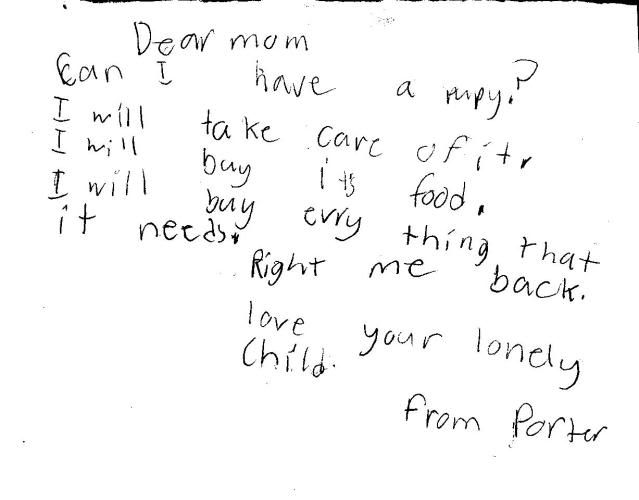 Dear mom
Can I have a pupy?
I will take care of it.
I will buy its food.
I will buy evry thing that
it needs.
Right me back.
love your lonely
Child.
from Porter